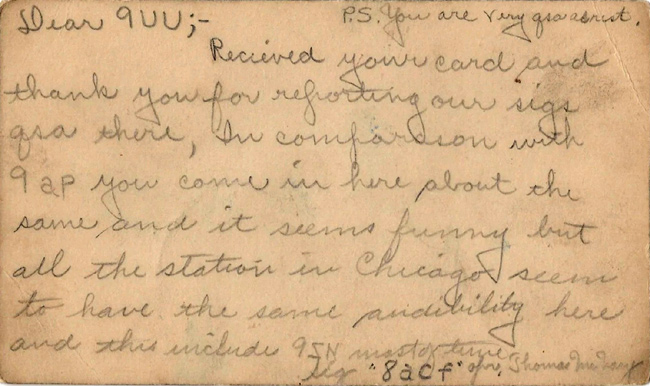 Dear 9UU;-
P.S. You are very qsa
Recieved your card and
thank you for reporting our sigs
qsa there, In comparison with
9ap you come in here about the
same and it seems funny but
all the station in Chicago seem
to have the same audibility here
and this include 9ZN most of time
sig "8acf" opr. Thomas